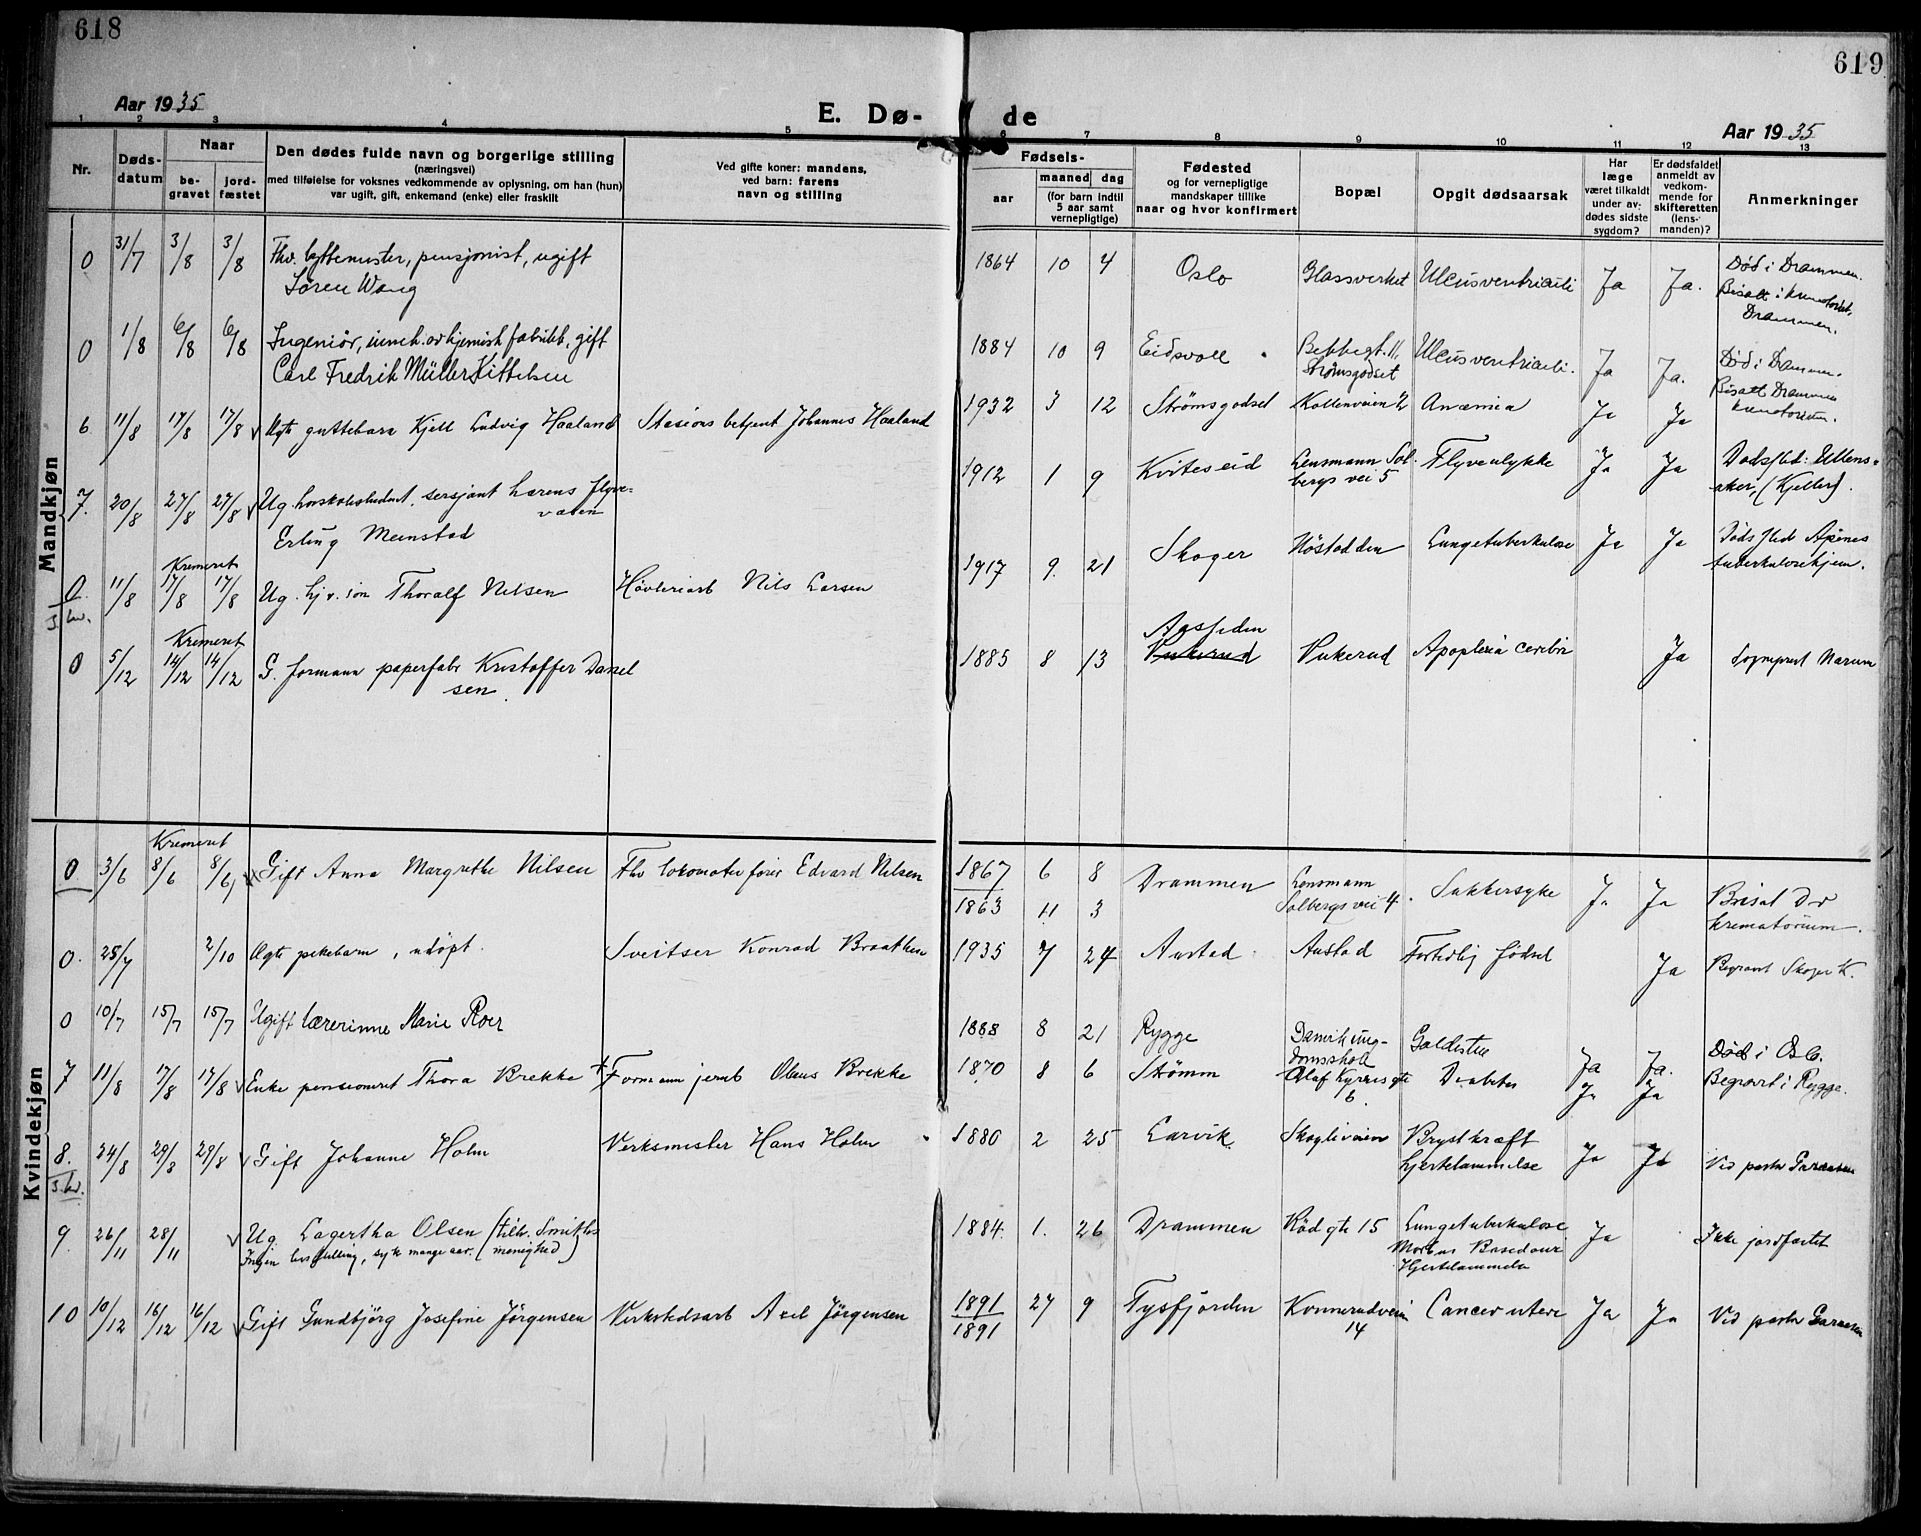 618
619
Aar 1935
E. Dø-
de
Aar 1935
1 2 3 4 5 6 7 8 9 10 11 12 13
Nr.
Døds-
datum
Naar
be-
gravet
jord-
fæstet
Den dødes fulde navn og borgerlige stilling
(næringsvei)
med tilføielse for voksnes vedkommende av oplysning, om han (hun)
var ugift, gift, enkemand (enke) eller fraskilt
Ved gifte koner: mandens,
ved barn: farens
navn og stilling
Fødsels-
aar
maaned dag
(for barn indtil
5 aar samt
vernepligtige)
Fødested
og for vernepligtige
mandskaper tillike
naar og hvor konfirmert
Bopæl
Opgit dødsaarsak
Har
læge
været tilkaldt
under av-
dødes sidste
sygdom?
Er dødsfaldet
anmeldt av
vedkom-
mende for
skifteretten
(lens-
manden)?
Anmerkninger
Mandkjøn
0 31/7 3/8 3/8 Fhv. byttemester, pensjonist, ugift
Søren Wang
1864 10 4 Oslo Glassverket Ulcus ventriculi Ja Ja. Død i Drammen.
Bisatt i krematoriet,
Drammen.
0 1/8 6/8 6/8 Ingeniør, inneh. av kjemisk fabrikk, gift
Carl Fredrik Müller Kittelsen
1884 10 9 Eidsvoll Bekkegt. 11, Ulcus ventriculi. Ja Ja. Død i Drammen.
Strømsgodset
Bisatt Drammen
krematorium.
6 11/8 17/8 17/8 Ekte guttebarn Kjell Ludvig Haaland Stasjons betjent Johannes Haaland
1932 3 12 Strømsgodset Kollenveien 2 Anæmia Ja Ja
7. 20/8 27/8 27/8 Ug. høiskolestudent. sersjant hærens flyve-
våben
Erling Meinstad
1912 1 9 Kviteseid Lensmann Sol- Flyveulykke Ja Ja Dødssted: Ullens-
bergs vei 5
aker, (Kjeller).
Kremeret
0. 11/8 17/8 17/8 Ug. hj. v. sin Thoralf Nilsen Høvleriarb Nils Larsen
1917 9. 21 Skoger Høstadden Lungetuberkulose Ja Ja Døds sted Åpenes
tuberkulosehjem.
Kremeret
0 5/12 14/12 14/12 G. formann paperfabr Kristoffer Daniel
sen.
Aasseden
1885 8 13 Vukerud Vukerud Apoplexia cerebri Ja Sogneprest Narum
Kvindekjøn
Kremeret
0 3/6 8/6 8/6 Gift Anna Margrethe Nilsen Fhv lokomotivfører Edvard Nilsen
1867 6 8 Drammen Lensmann Sukkersyke Ja Ja Bisat Dr
1863 11 3 Solbergs vei 4.
krematorium.
0. 25/7 2/10 Ægte pikebarn, udøpt. Sveitser Konrad Braathen
1935 7 24 Austad Austad Fortidlig fødsel Ja Begravet Skoger K.
0 10/7 15/7 15/7 Ugift lærerinne Marie Roer
1888 8 21 Rygge Danvik ung- Galdesten Ja Ja. Død i Oslo.
domsskole
Begravet i Rygge.
7 11/8 17/8 17/8 Enke pensioneret Thora Brekke + Formann jernb Olaus Brekke
1870 8 6 Strømm Olaf Kyrres gte Diabetes Ja Ja
6.
8. 24/8 29/8 29/8 Gift Johanne Holm Verksmester Hans Holm
1880 2 25 Larvik Skogliveien Brystkræft Ja Ja Ved pastor
hjertelammelse
9. 26/11 28/11 Ug. Lagertha Olsen (tilh. Smiths
Ingen livsstilling, syk mange aar. menighed)
1884 1. 26 Drammen Rød gte 15 Lungetuberkulose Ja Ikke jordfæstet
Morbus Basedowii
Hjertelammelse
10 10/12 16/12 16/12 Gift Gundbjørg Josefine Jørgensen Verkstedsarb Axel Jørgensen
1891 27 9 Tysfjorden Konnerudveien Cancer uteri Ja Ja Ved pastor
1891 14